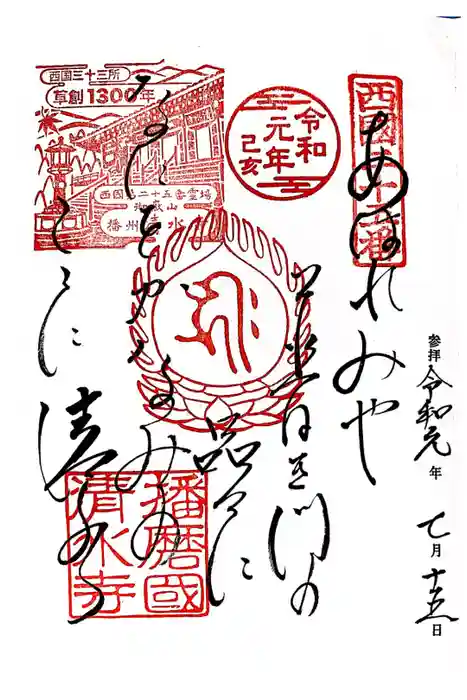 参拝 令和元年 七月十五日
西國廿五番
あはれみや
普き門の
品々に
なにをかなみの
ここに清水
令和
元年
己亥
西国三十三所
草創1300年
西国第二十五番霊場
御嶽山
播州清水
播磨國
清水寺